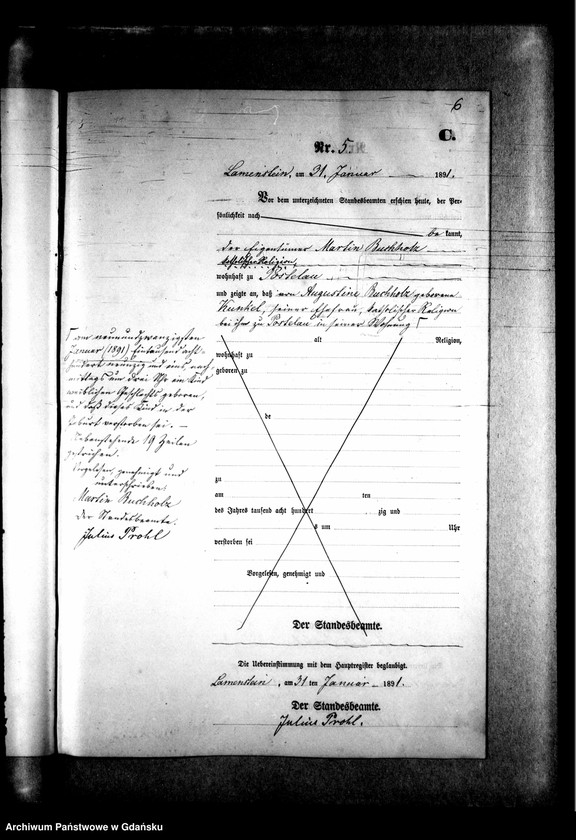 6
C.
Nr. 5.
Lamenstein, am 31. Januar 1891.
Vor dem unterzeichneten Standesbeamten erschien heute, der Per-
sönlichkeit nach
be kannt,
der Eigentümer Martin Buchholz
katholischer Religion,
wohnhaft zu Postelau
und zeigte an, daß von Augustine Buchholz geborene
Kunkel, seiner Ehefrau, katholischer Religion
bei ihm zu Postelau in seiner Wohnung Γ
alt Religion,
wohnhaft zu
geboren zu
de
zu
am ten
des Jahres tausend acht hundert zig und
s um Uhr
verstorben sei
Vorgelesen, genehmigt und
Der Standesbeamte.
Γ am neunundzwanzigsten
Januar (1891) Eintausend acht-
hundert neunzig und eins, nach-
mittags um drei Uhr ein Kind
weiblichen Geschlechts geboren,
und daß dieses Kind in der
Geburt verstorben sei. —
Nebenstehende 19 Zeilen
gestrichen.
Vorgelesen, genehmigt und
unterschrieben,
Martin Buchholz
Der Standesbeamte.
Julius Prohl
Die Uebereinstimmung mit dem Hauptregister beglaubigt.
Lamenstein, am 31 ten Januar 1891.
Der Standesbeamte.
Julius Prohl.
Archiwum Państwowe w Gdańsku